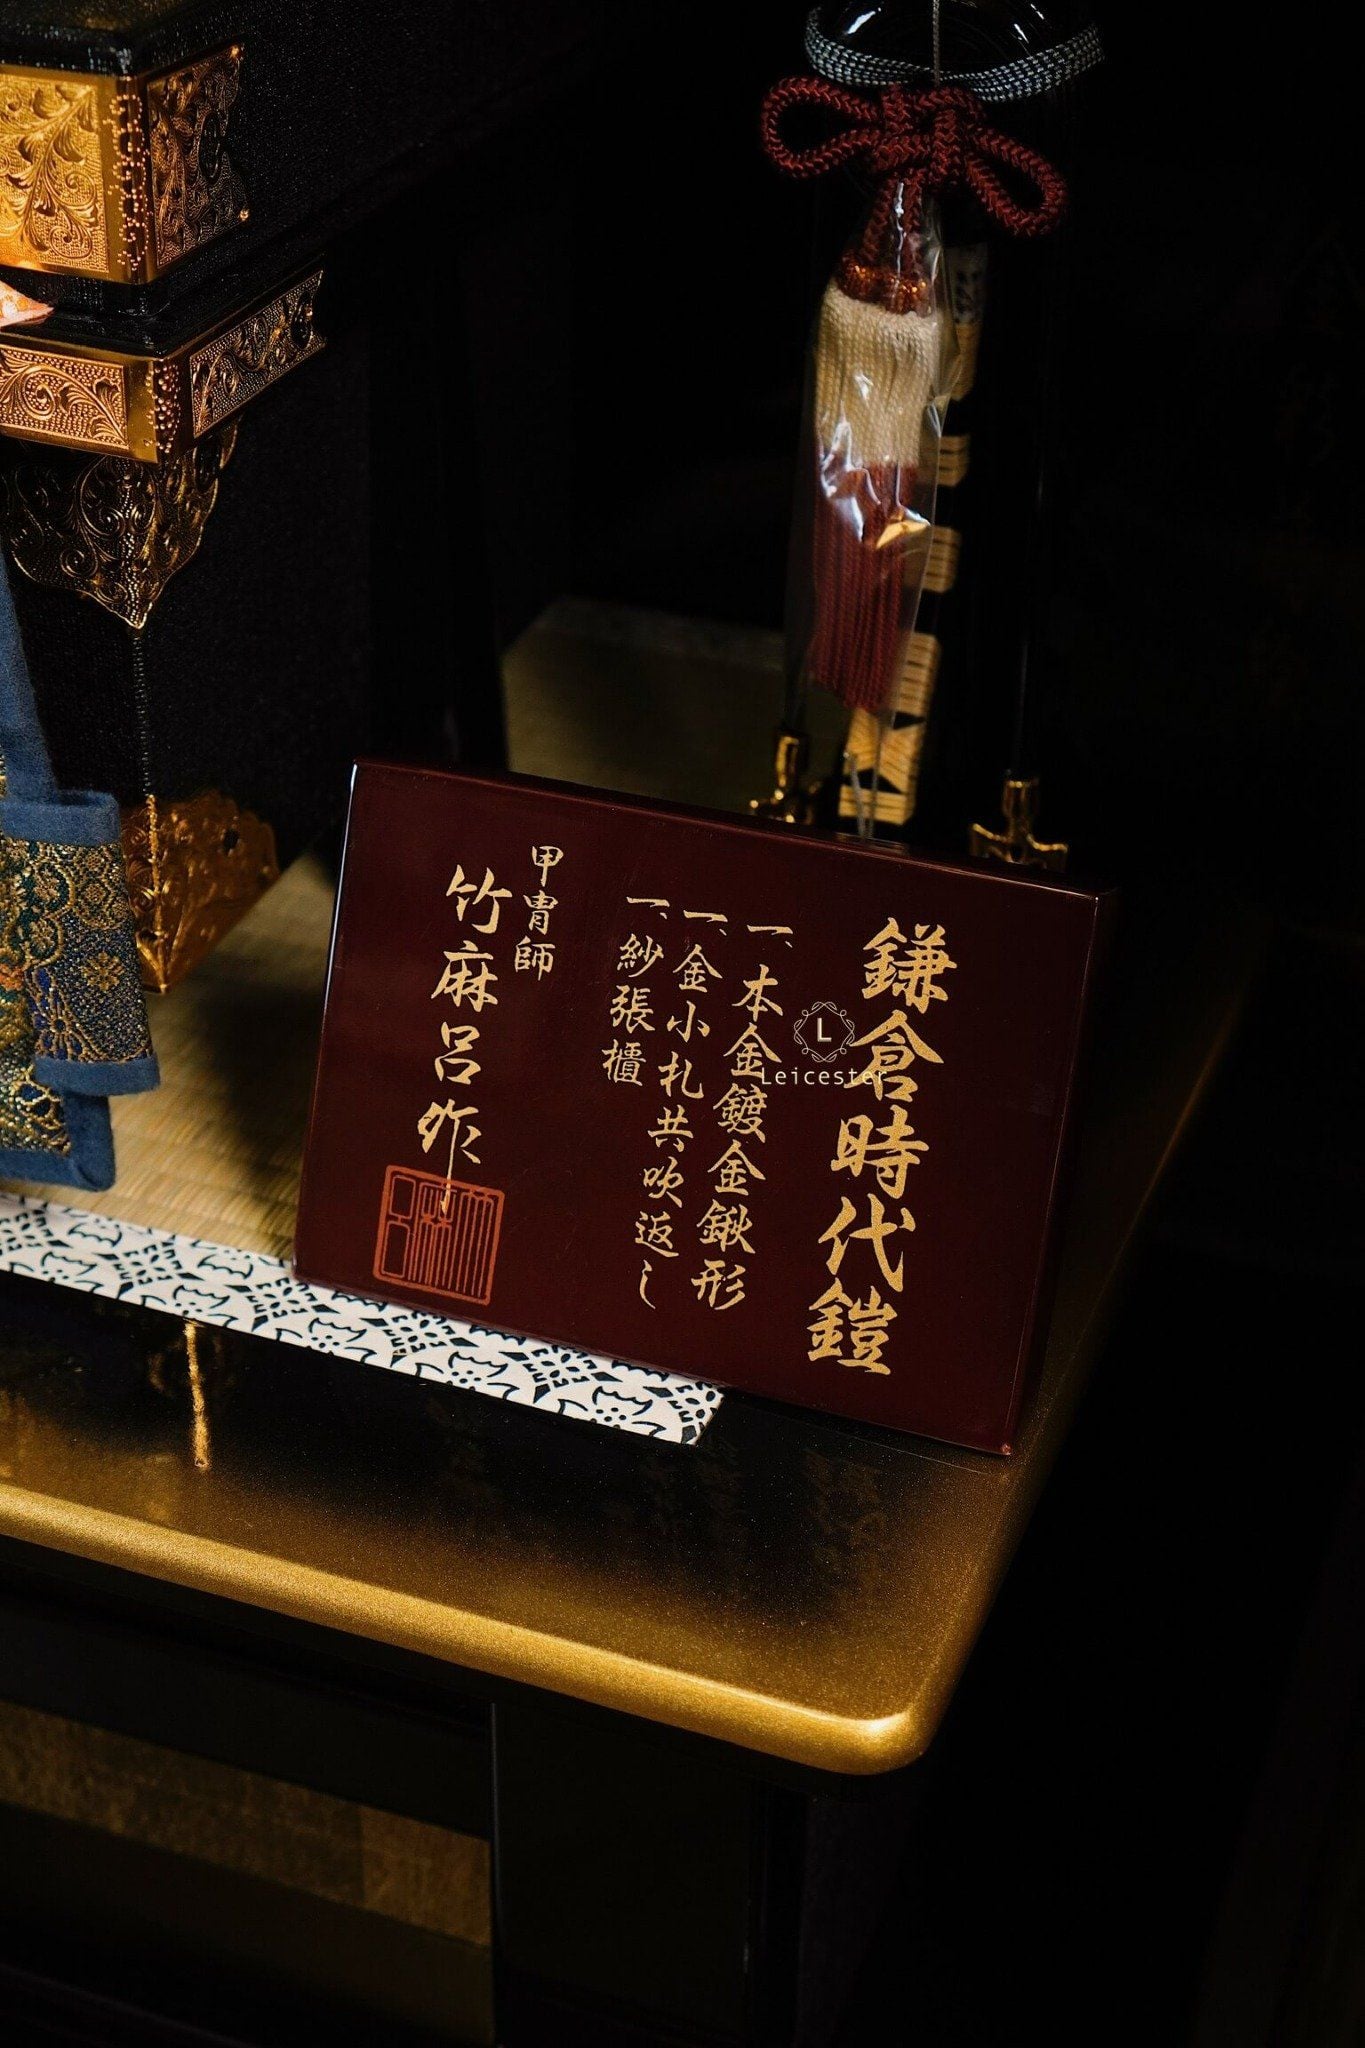 鎌倉時代鎧
一、本金鍍金鍬形
一、金小札共吹返し
一、紗張櫃
甲冑師
竹麻呂作
L
Leicester